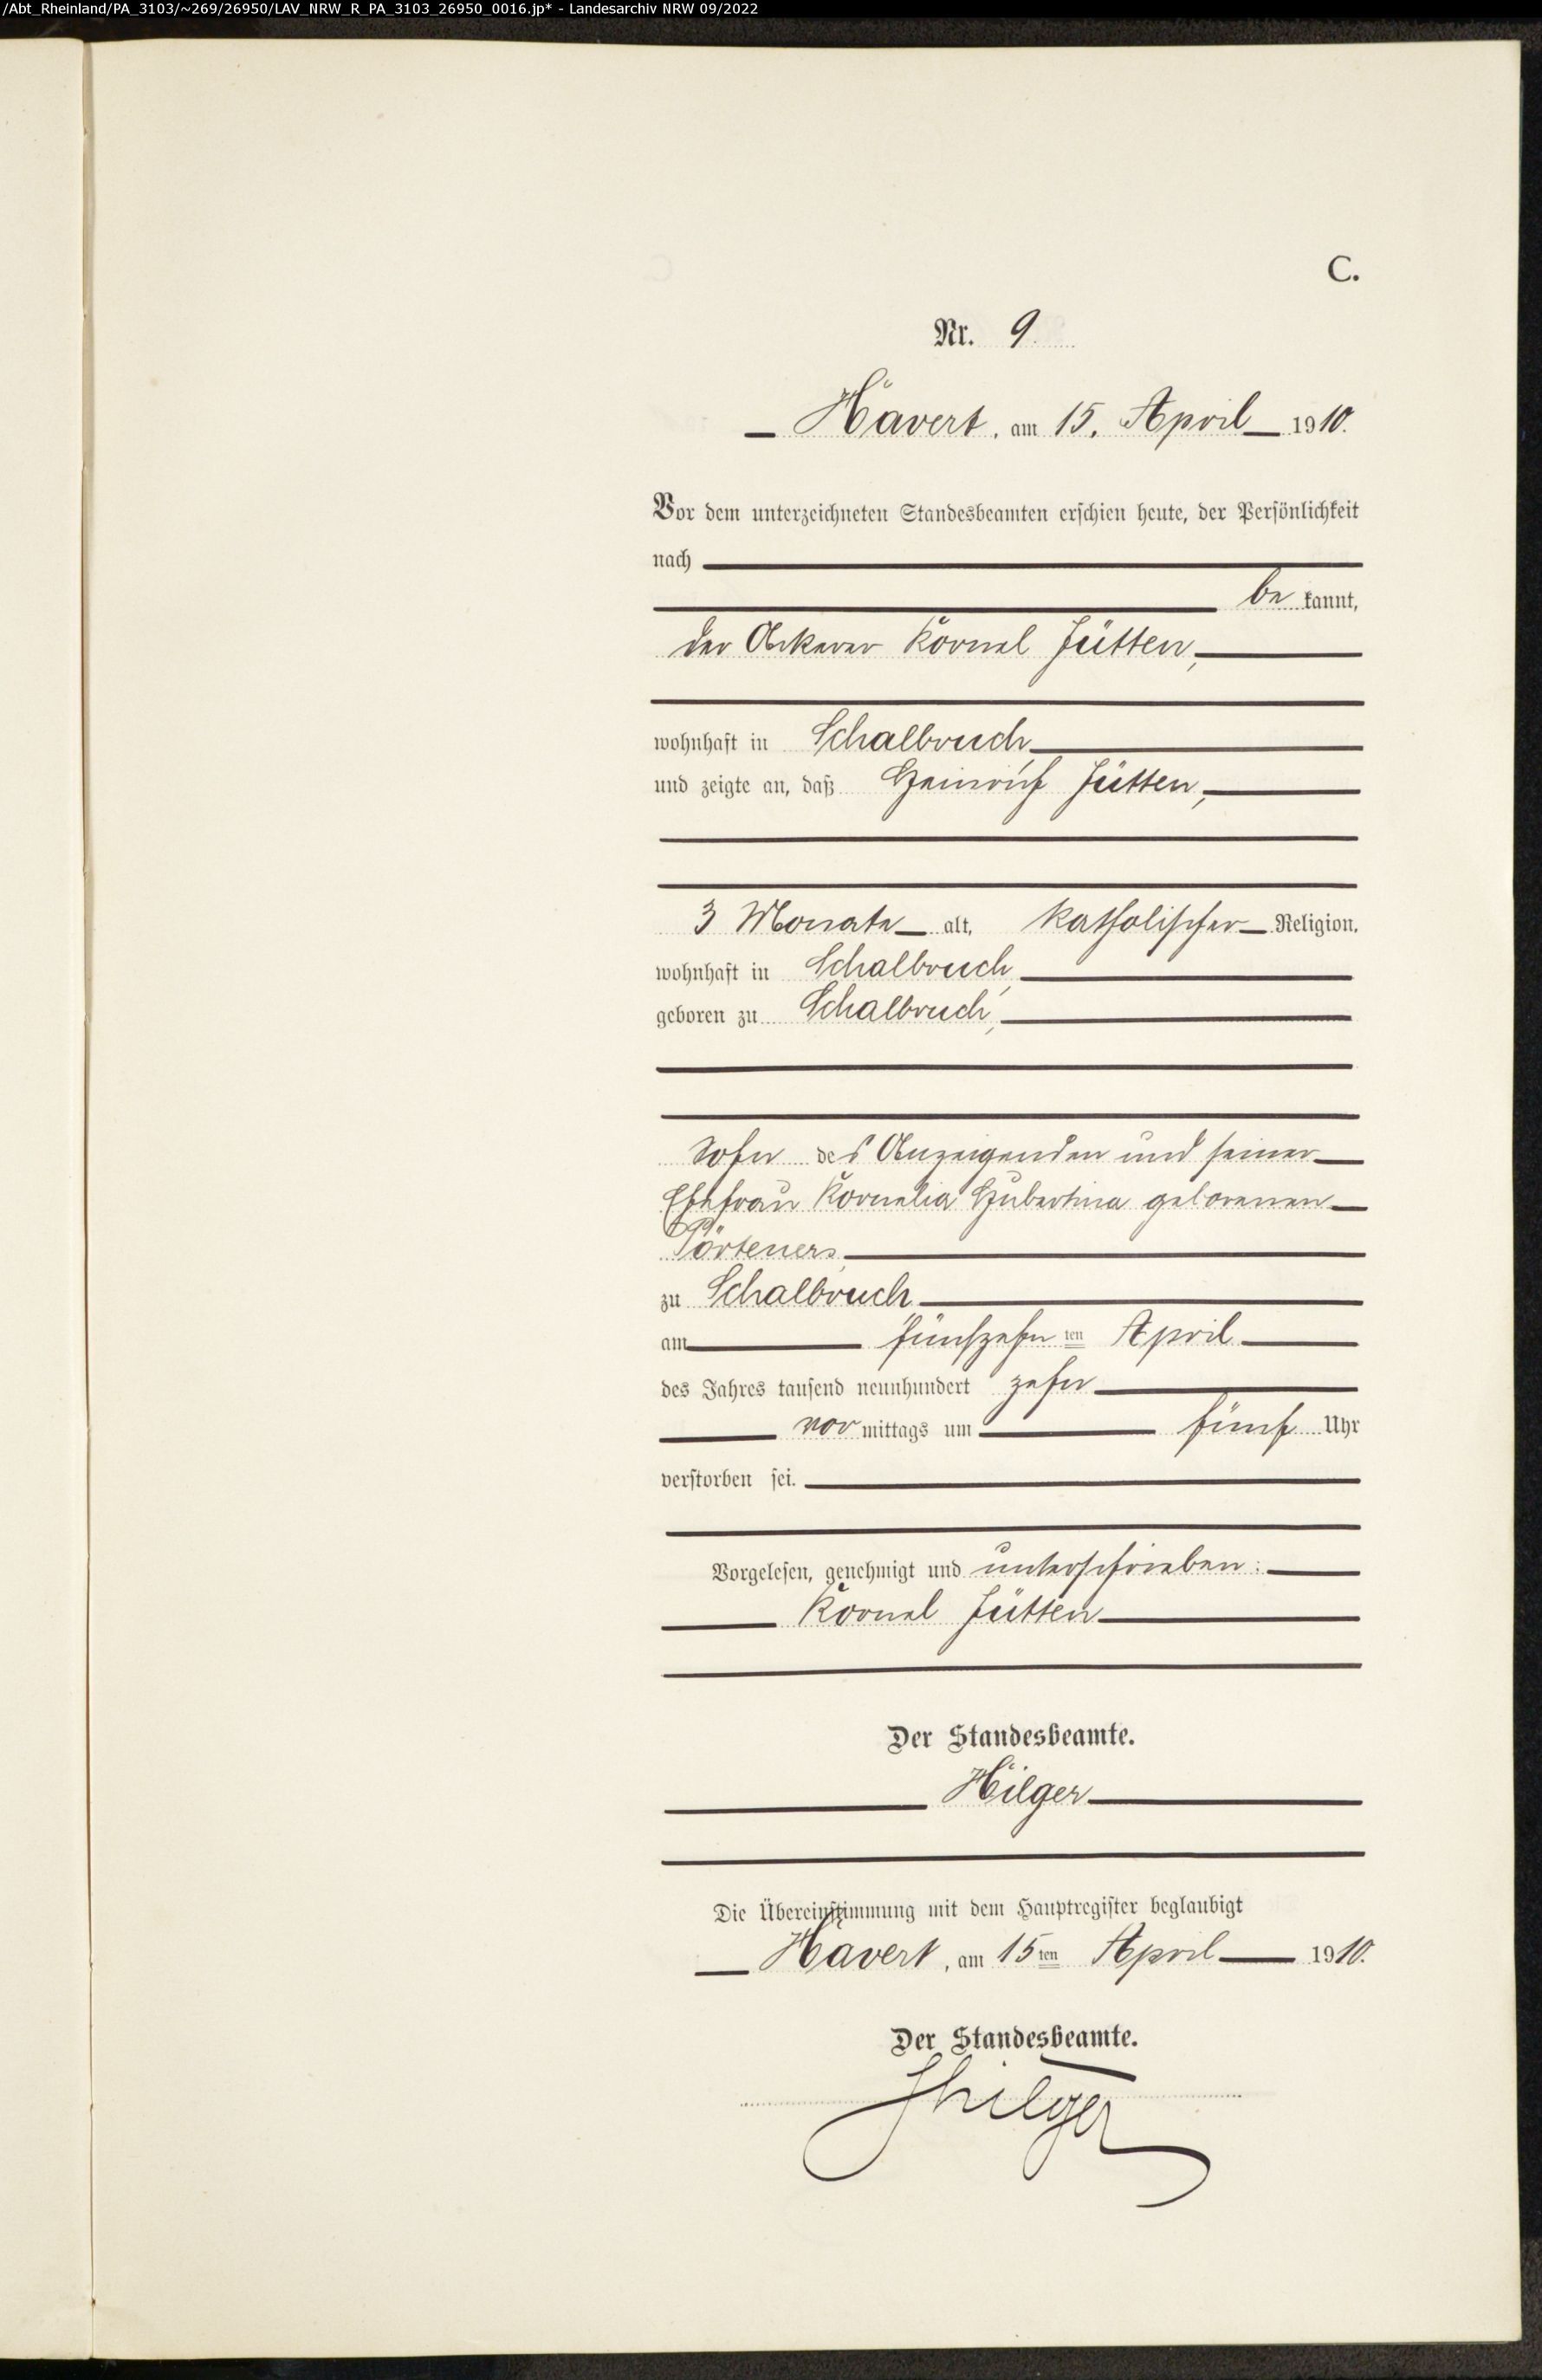 /Abt_Rheinland/PA_3103/~269/26950/LAV_NRW_R_PA_3103_26950_0016.jp* - Landesarchiv NRW 09/2022
C.
Nr. 9.
Havert, am 15. April 1910.
Vor dem unterzeichneten Standesbeamten erschien heute, der Persönlichkeit
nach
be kannt,
der Ackerer Kornel Jütten,
wohnhaft in Schalbruch
und zeigte an, daß Heinrich Jütten,
3 Monate alt, katholischer Religion,
wohnhaft in Schalbruch,
geboren zu Schalbruch,
Sohn des Anzeigenden und seiner
Ehefrau Kornelia Hubertina geborenen
Pörteners,
zu Schalbruch
am fünfzehn ten April
des Jahres tausend neunhundert zehn
vor mittags um fünf Uhr
verstorben sei.
Vorgelesen, genehmigt und unterschrieben:
Kornel Jütten
Der Standesbeamte.
Hilger
Die Übereinstimmung mit dem Hauptregister beglaubigt
Havert, am 15ten April 1910.
Der Standesbeamte.
Hilger